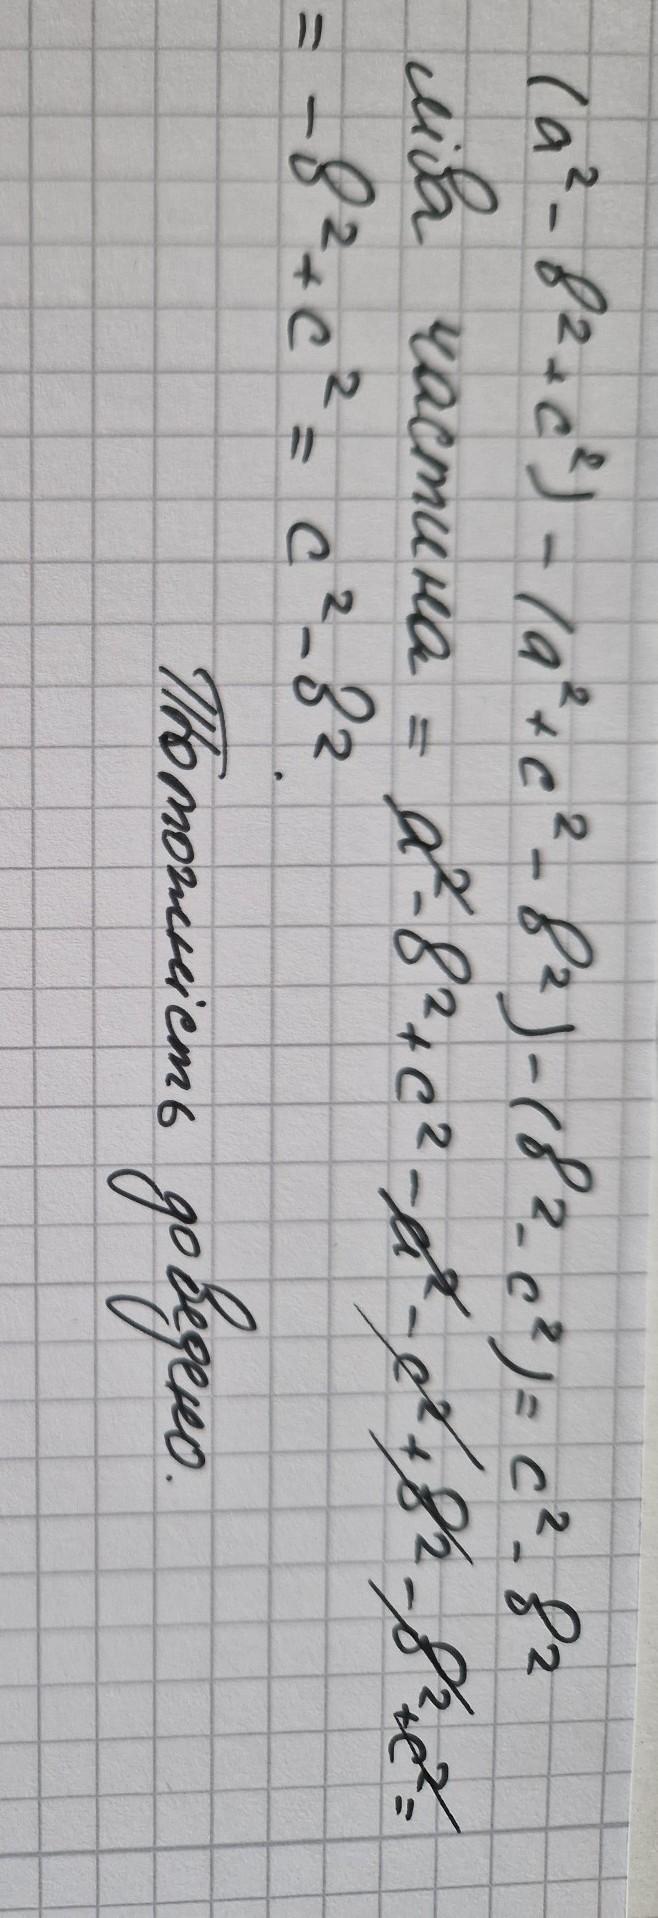 (a² - b² + c²) - (a² + c² - b²) - (b² - c²) = c² - b²
ліва частина = a² - b² + c² - a² - c² + b² - b² + c² =
= - b² + c² = c² - b².
Тотожність доведено.